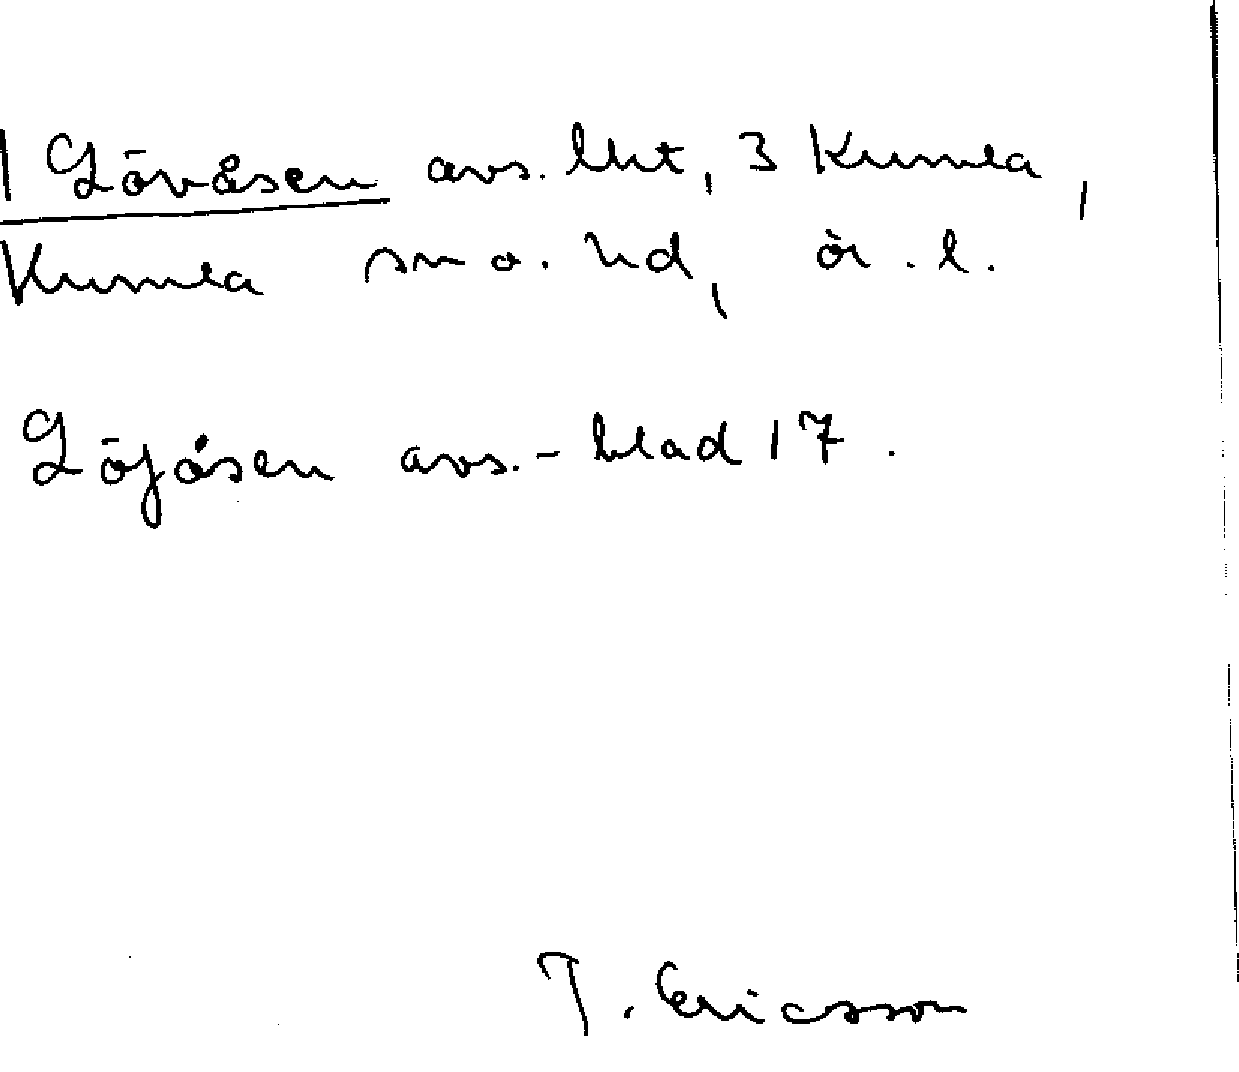 1 Lövåsen avs. lht, 3 Kumla,
Kumla sn o. hd, ör. l.
Löfåsen avs.-blad 17.
T. Ericsson